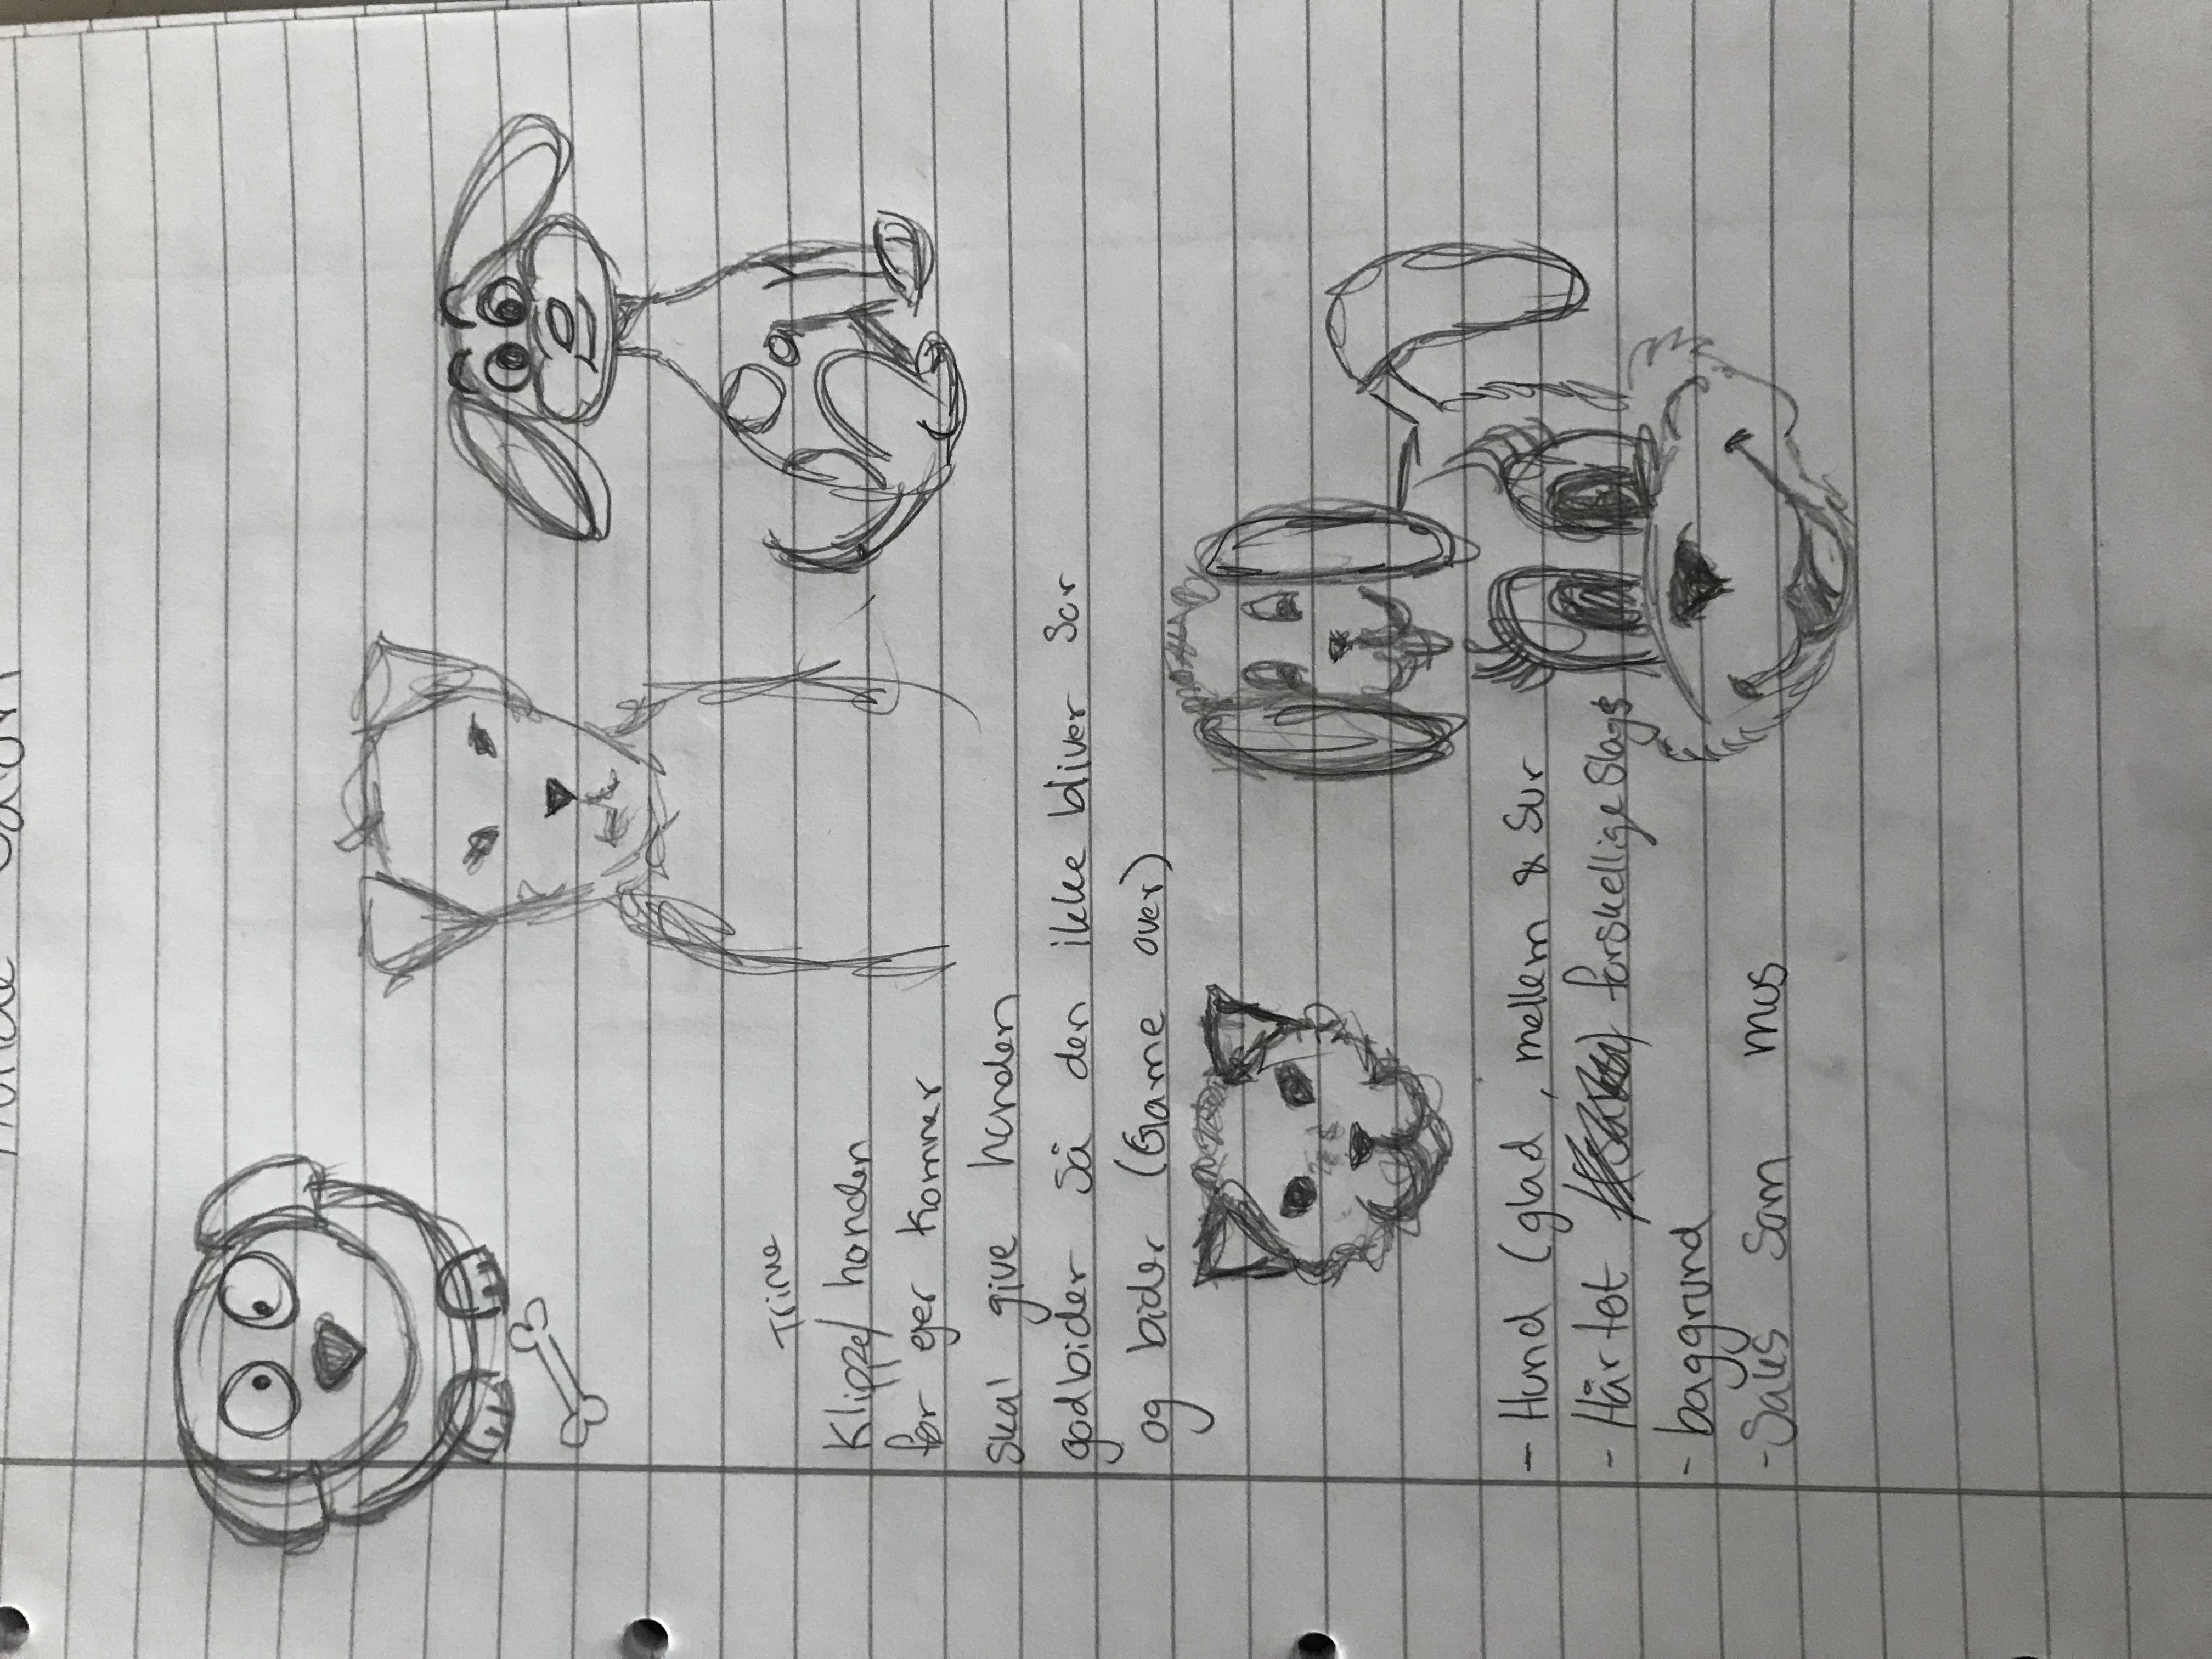 Hunde Salon
Trime
Klippe/ hunden
før ejer kommer
skal give hunden
godbider så den ikke bliver sur
og bider (Game over)
- Hund (glad, mellem & sur
- Hårtot forskellige slags
- baggrund
- Saks som mus